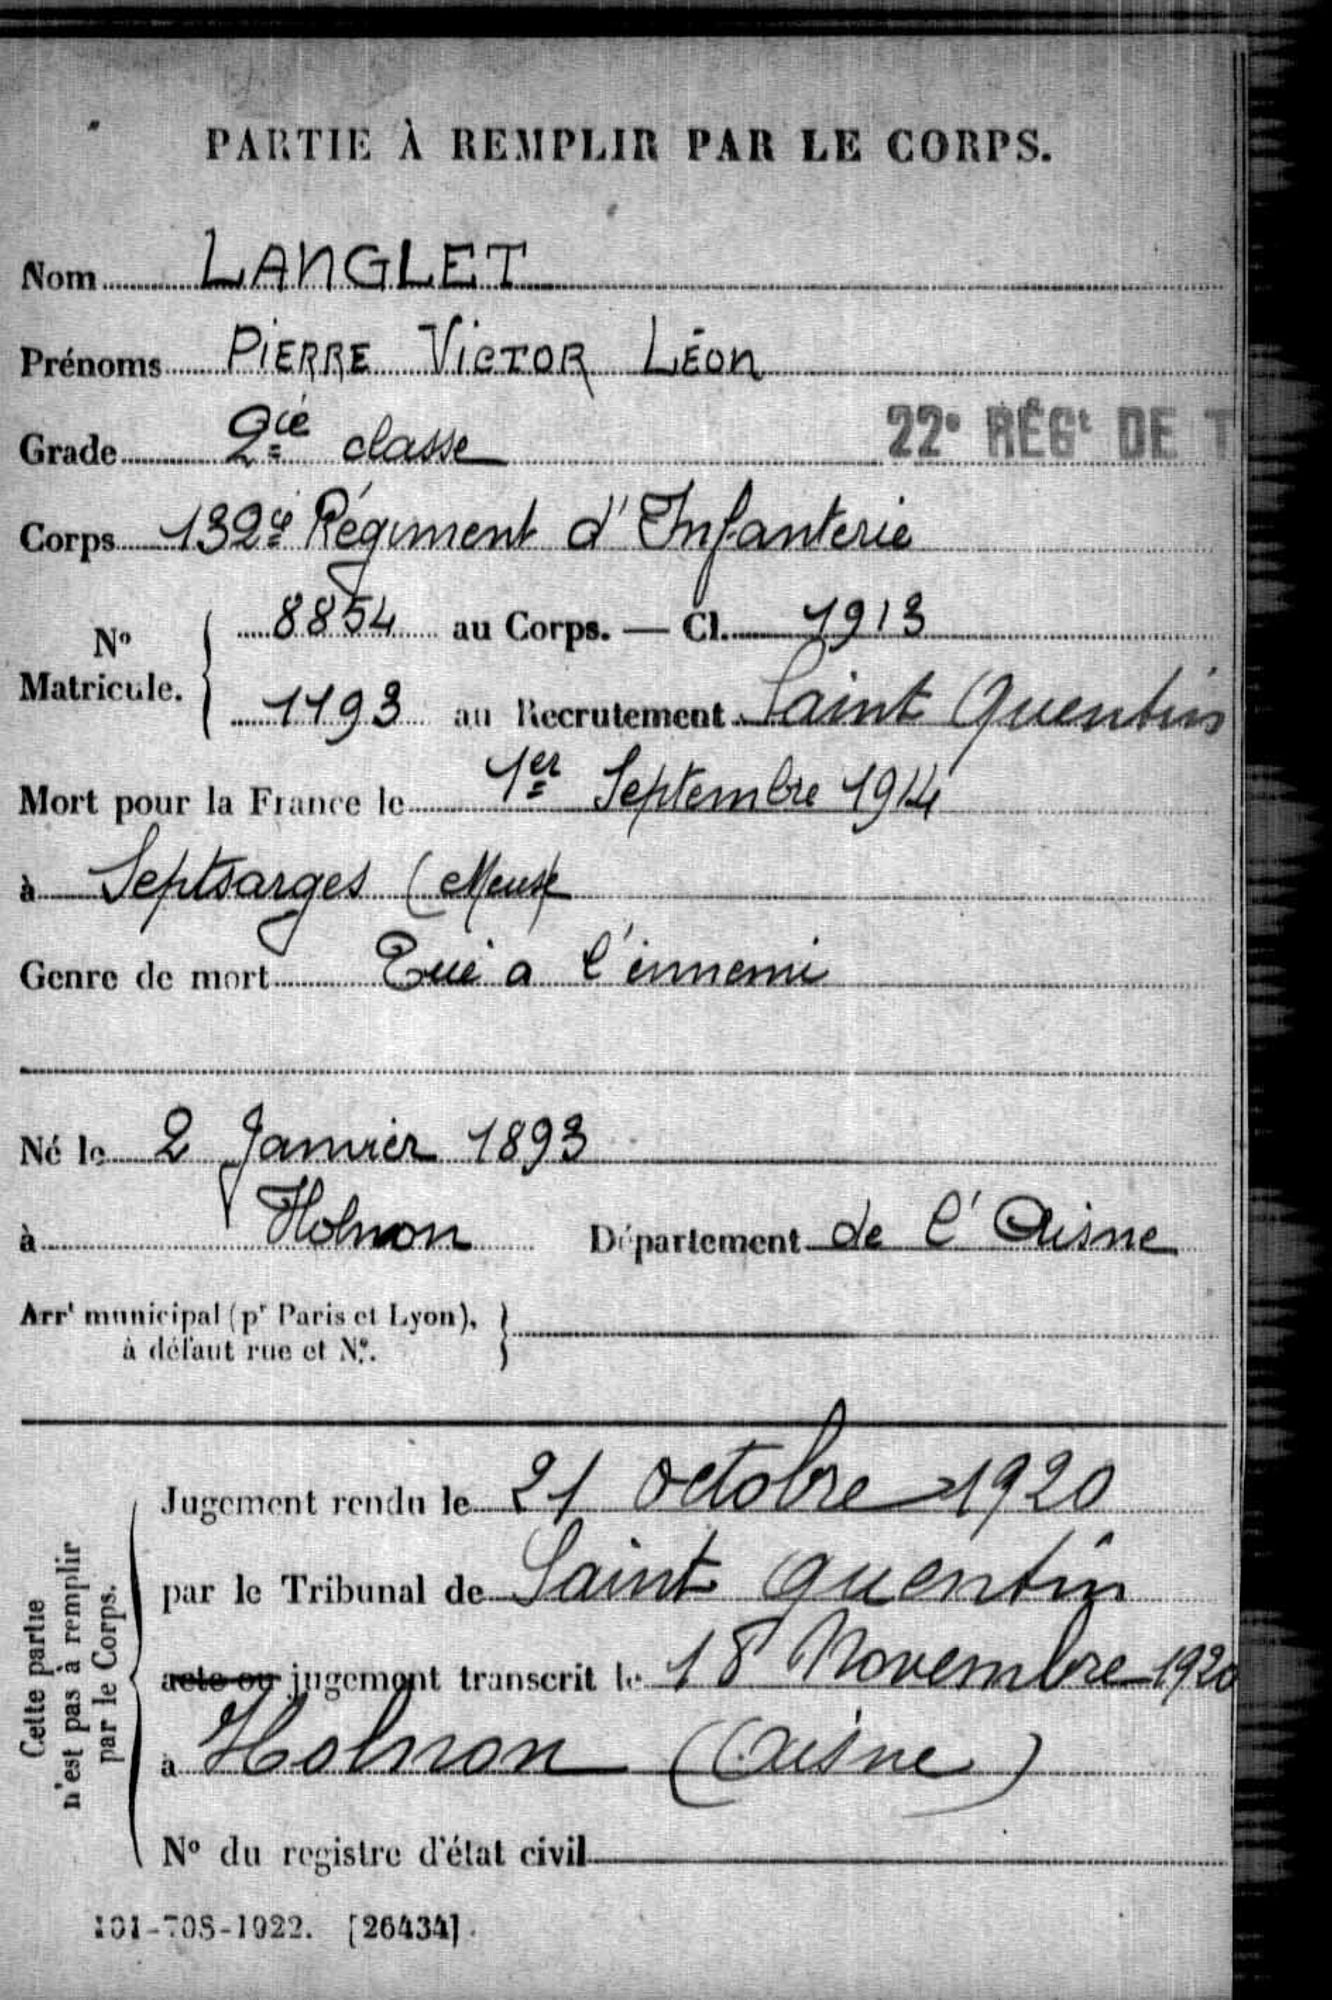 PARTIE À REMPLIR PAR LE CORPS.
Nom LANGLET
Prénoms PIERRE VICTOR LÉON
Grade 2ie classe 22e RÉGt DE T
Corps 132e Régiment d'Infanterie
No Matricule. 8854 au Corps. — Cl. 1913
1193 au Recrutement Saint Quentin
Mort pour la France le 1er Septembre 1914
à Septsarges (Meuse
Genre de mort Tué a l'ennemi
Né le 2 Janvier 1893
à Holnon Département de l'Aisne
Arrt municipal (pr Paris et Lyon),
à défaut rue et No.
Cette partie
n'est pas à remplir
par le Corps.
Jugement rendu le 21 octobre 1920
par le Tribunal de Saint quentin
acte ou jugement transcrit le 18 Novembre 1920
à Holnon (Aisne)
No du registre d'état civil
101-708-1922. [26434].